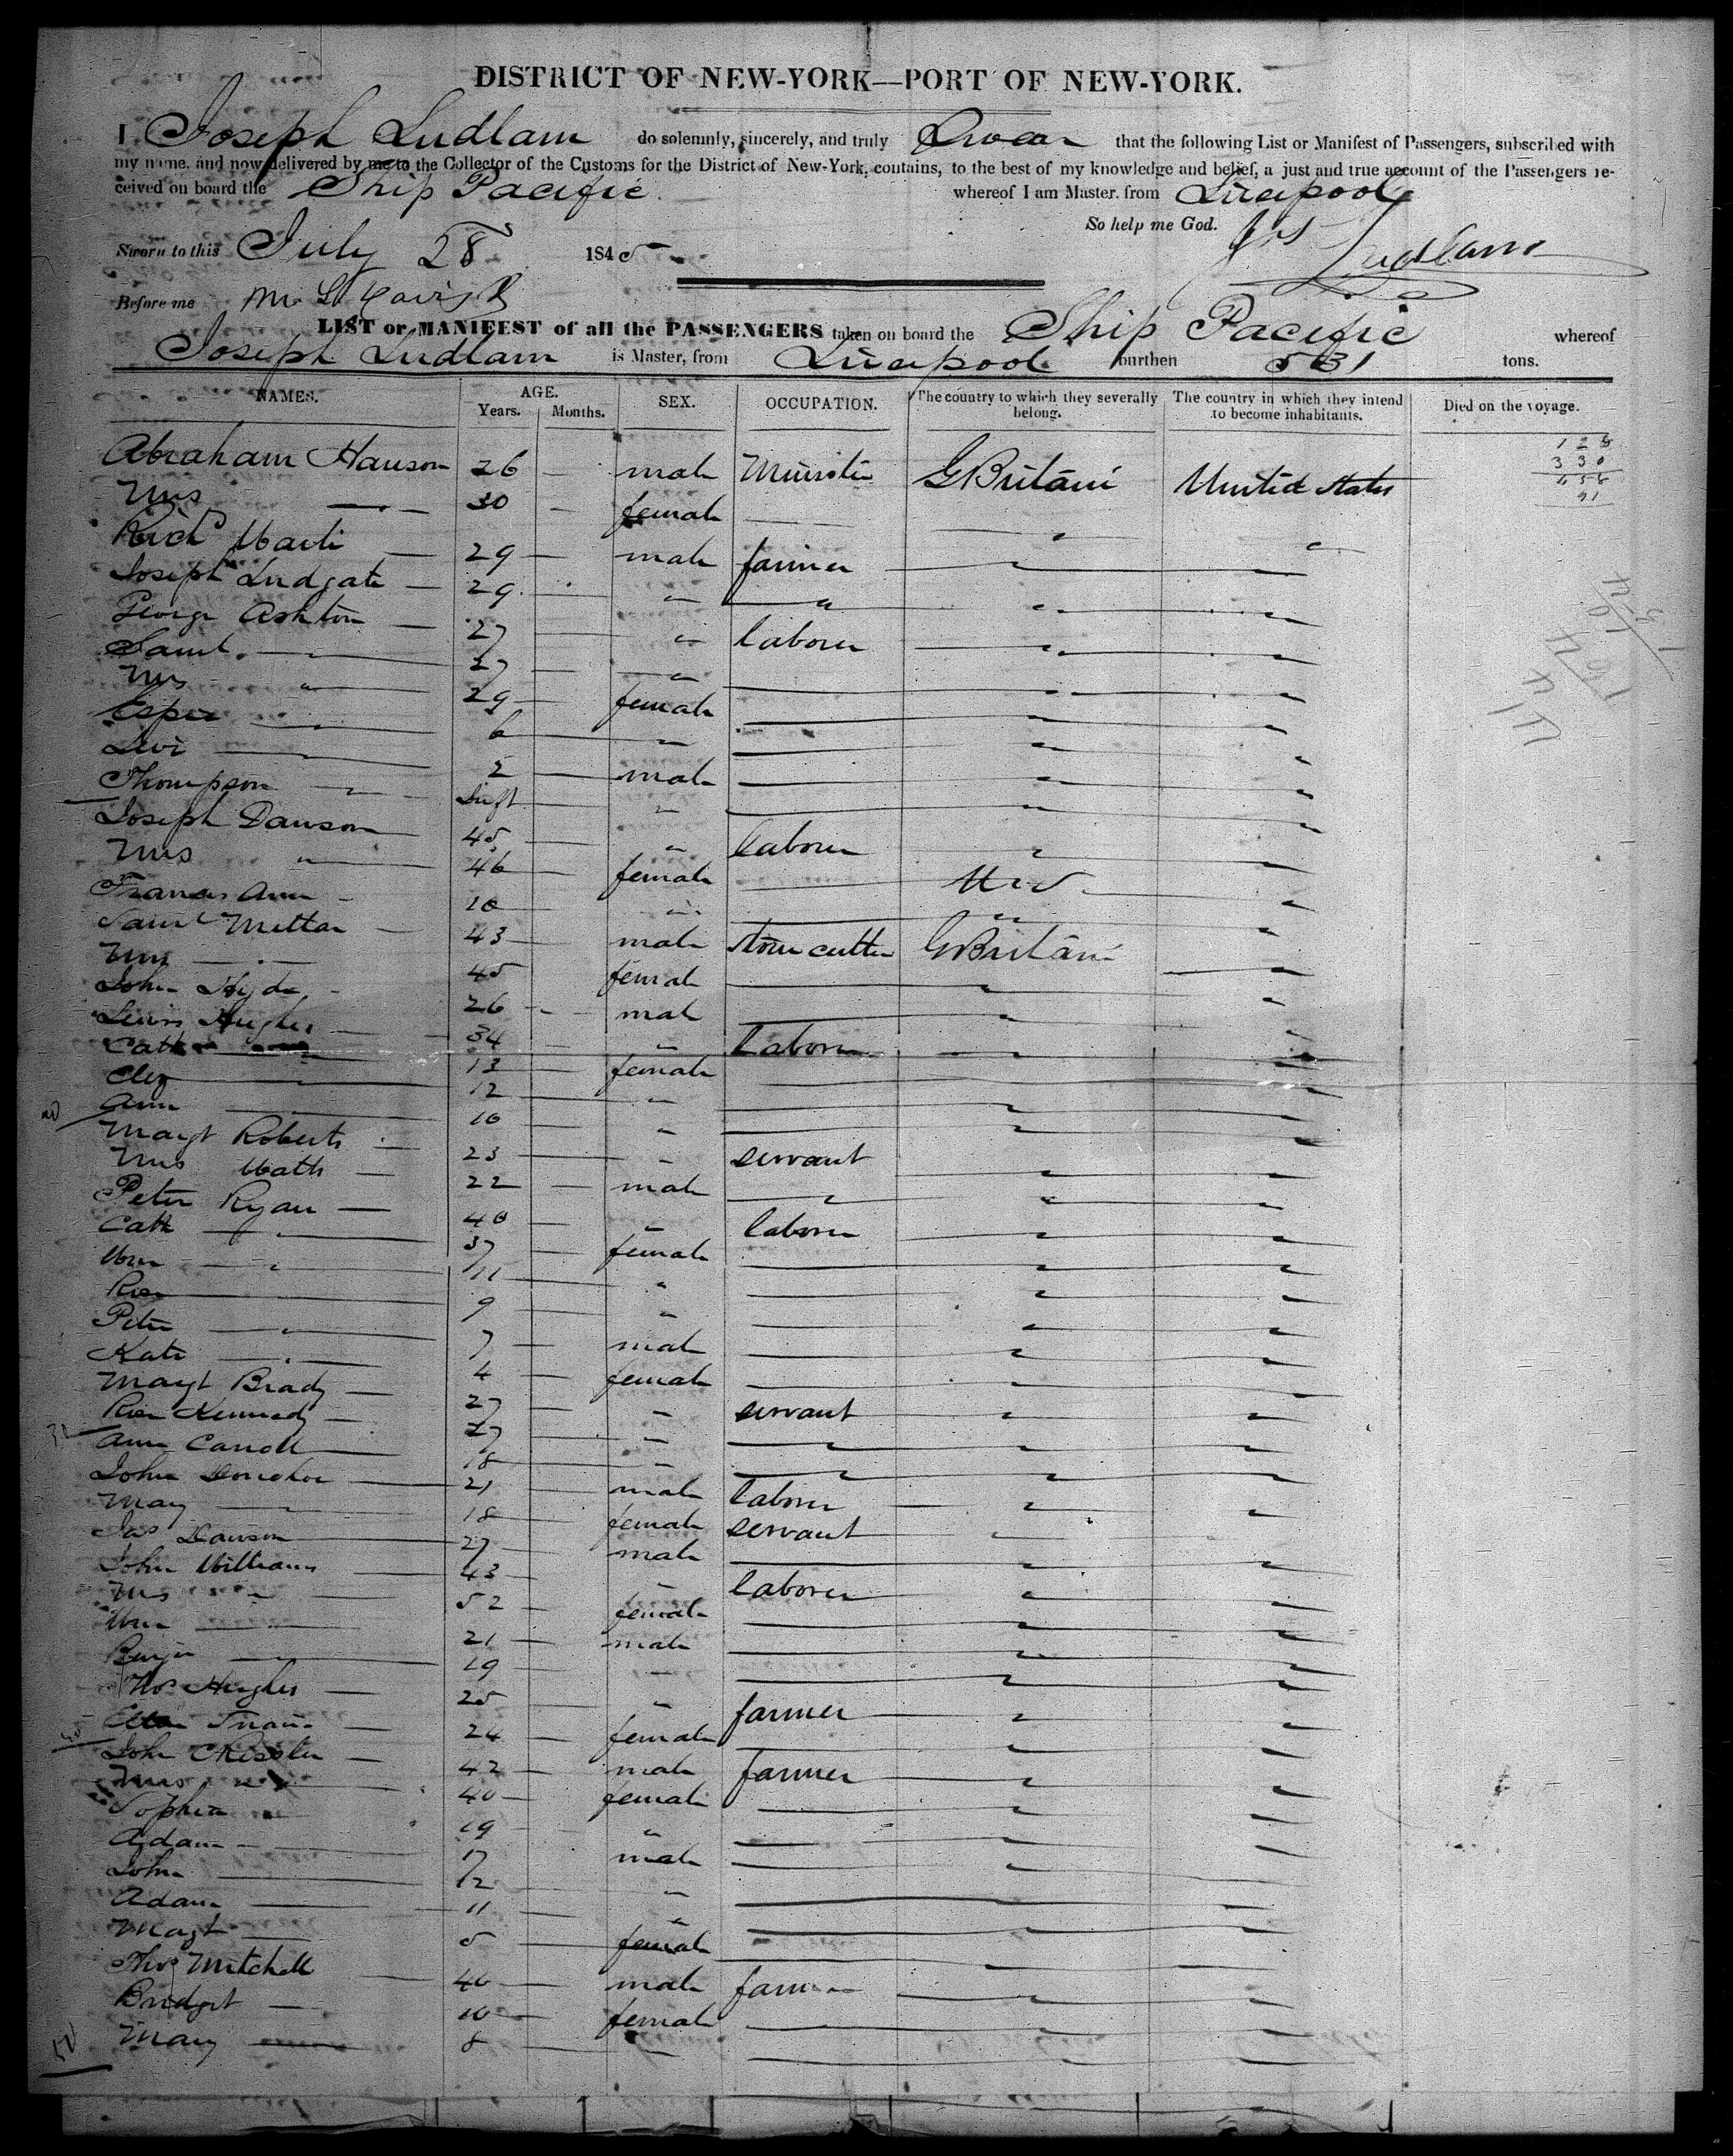 DISTRICT OF NEW-YORK—PORT OF NEW-YORK.
I Joseph Ludlam do solemnly, sincerely, and truly Swear that the following List or Manifest of Passengers, subscribed with
my name, and now delivered by me to the Collector of the Customs for the District of New-York, contains, to the best of my knowledge and belief, a just and true account of the Passengers re-
ceived on board the Ship Pacific whereof I am Master, from Liverpool
So help me God.
Sworn to this July 28 1845 Jos Ludlam
Before me
LIST or MANIFEST of all the PASSENGERS taken on board the Ship Pacific whereof
Joseph Ludlam is Master, from Liverpool burthen 531 tons.
NAMES. AGE. Years. Months. SEX. OCCUPATION. The country to which they severally belong. The country in which they intend to become inhabitants. Died on the voyage.
Abraham Hanson 26 male Minister G Britain United States
Mrs 30 female
Richd 29 male farmer
Joseph Ludgate 29 " "
George Ashton 27 " laborer
Saml 27 "
Mrs " 29 female
6 "
Levi 2 male
Thompson " Inft "
Joseph Dawson 45 " laborer
Mrs " 46 female U.S.
Frances Ann 10 " "
Saml 43 male stone cutter G Britain
Mrs 45 female
John Hyde 26 male
Lewis Hughes 34 " laborer
Cath 13 female
Eliz 12 "
Ann 10 "
Margt Roberts 23 " servant
Mrs 22 male "
Peter Ryan 40 " laborer
Cath " 37 female
Wm " 11 "
Rose 9 "
Peter " 7 male
Kate " 4 female
Margt Brady 27 " servant
Rose Kennedy 27 " "
Ann Carroll 18 " "
John Donohoe 21 male laborer
May 18 female servant
Jas Dawson 27 male
John Williams 43 " laborer
Mrs " 52 female
Wm 21 male
Benjn 19 "
Thos Hughes 25 " farmer
24 female
John 42 male farmer
Mrs 40 female
Sophia 19 "
Adam 17 male
John 12 "
Adam 11 "
Margt 5 female
Thos Mitchell 40 male farmer
Bridget 10 female
Mary 8 "